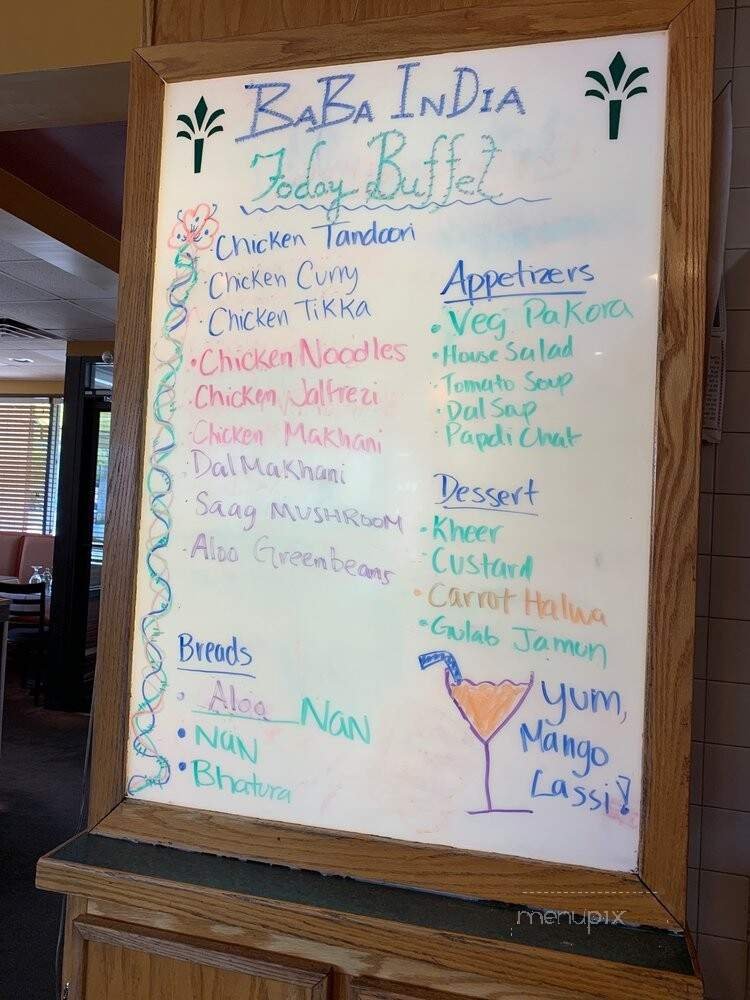 BaBa InDia
Today Buffet
• Chicken Tandoori
• Chicken Curry
• Chicken Tikka
• Chicken Noodles
• Chicken Jalfrezi
• Chicken Makhani
• Dal Makhani
• Saag MUSHROOM
• Aloo Greenbeans
Breads
• Aloo NaN
• NaN
• Bhatura
Appetizers
• Veg Pakora
• House Salad
• Tomato Soup
• Dal Sap
• Papdi Chat
Dessert
• Kheer
• Custard
• Carrot Halwa
• Gulab Jamun
Yum,
Mango
Lassi!
menupix